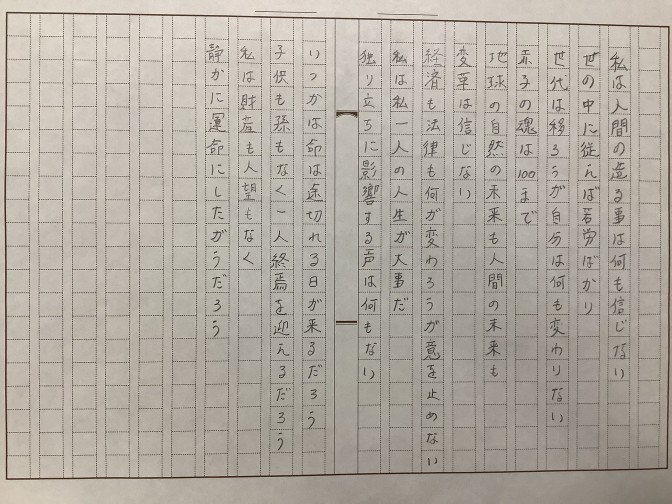 私は人間の造る事は何も信じない
世の中に従えば苦労ばかり
世代は移ろうが自分は何も変わりない
赤子の魂は100まで
地球の自然の未来も人間の未来も
変革は信じない
経済も法律も何が変わろうが意を止めない
私は私一人の人生が大事だ
独り立ちに影響する声は何もない
いつかは命は途切れる日が来るだろう
子供も孫もなく一人終焉を迎えるだろう
私は財産も人望もなく
静かに運命にしたがうだろう